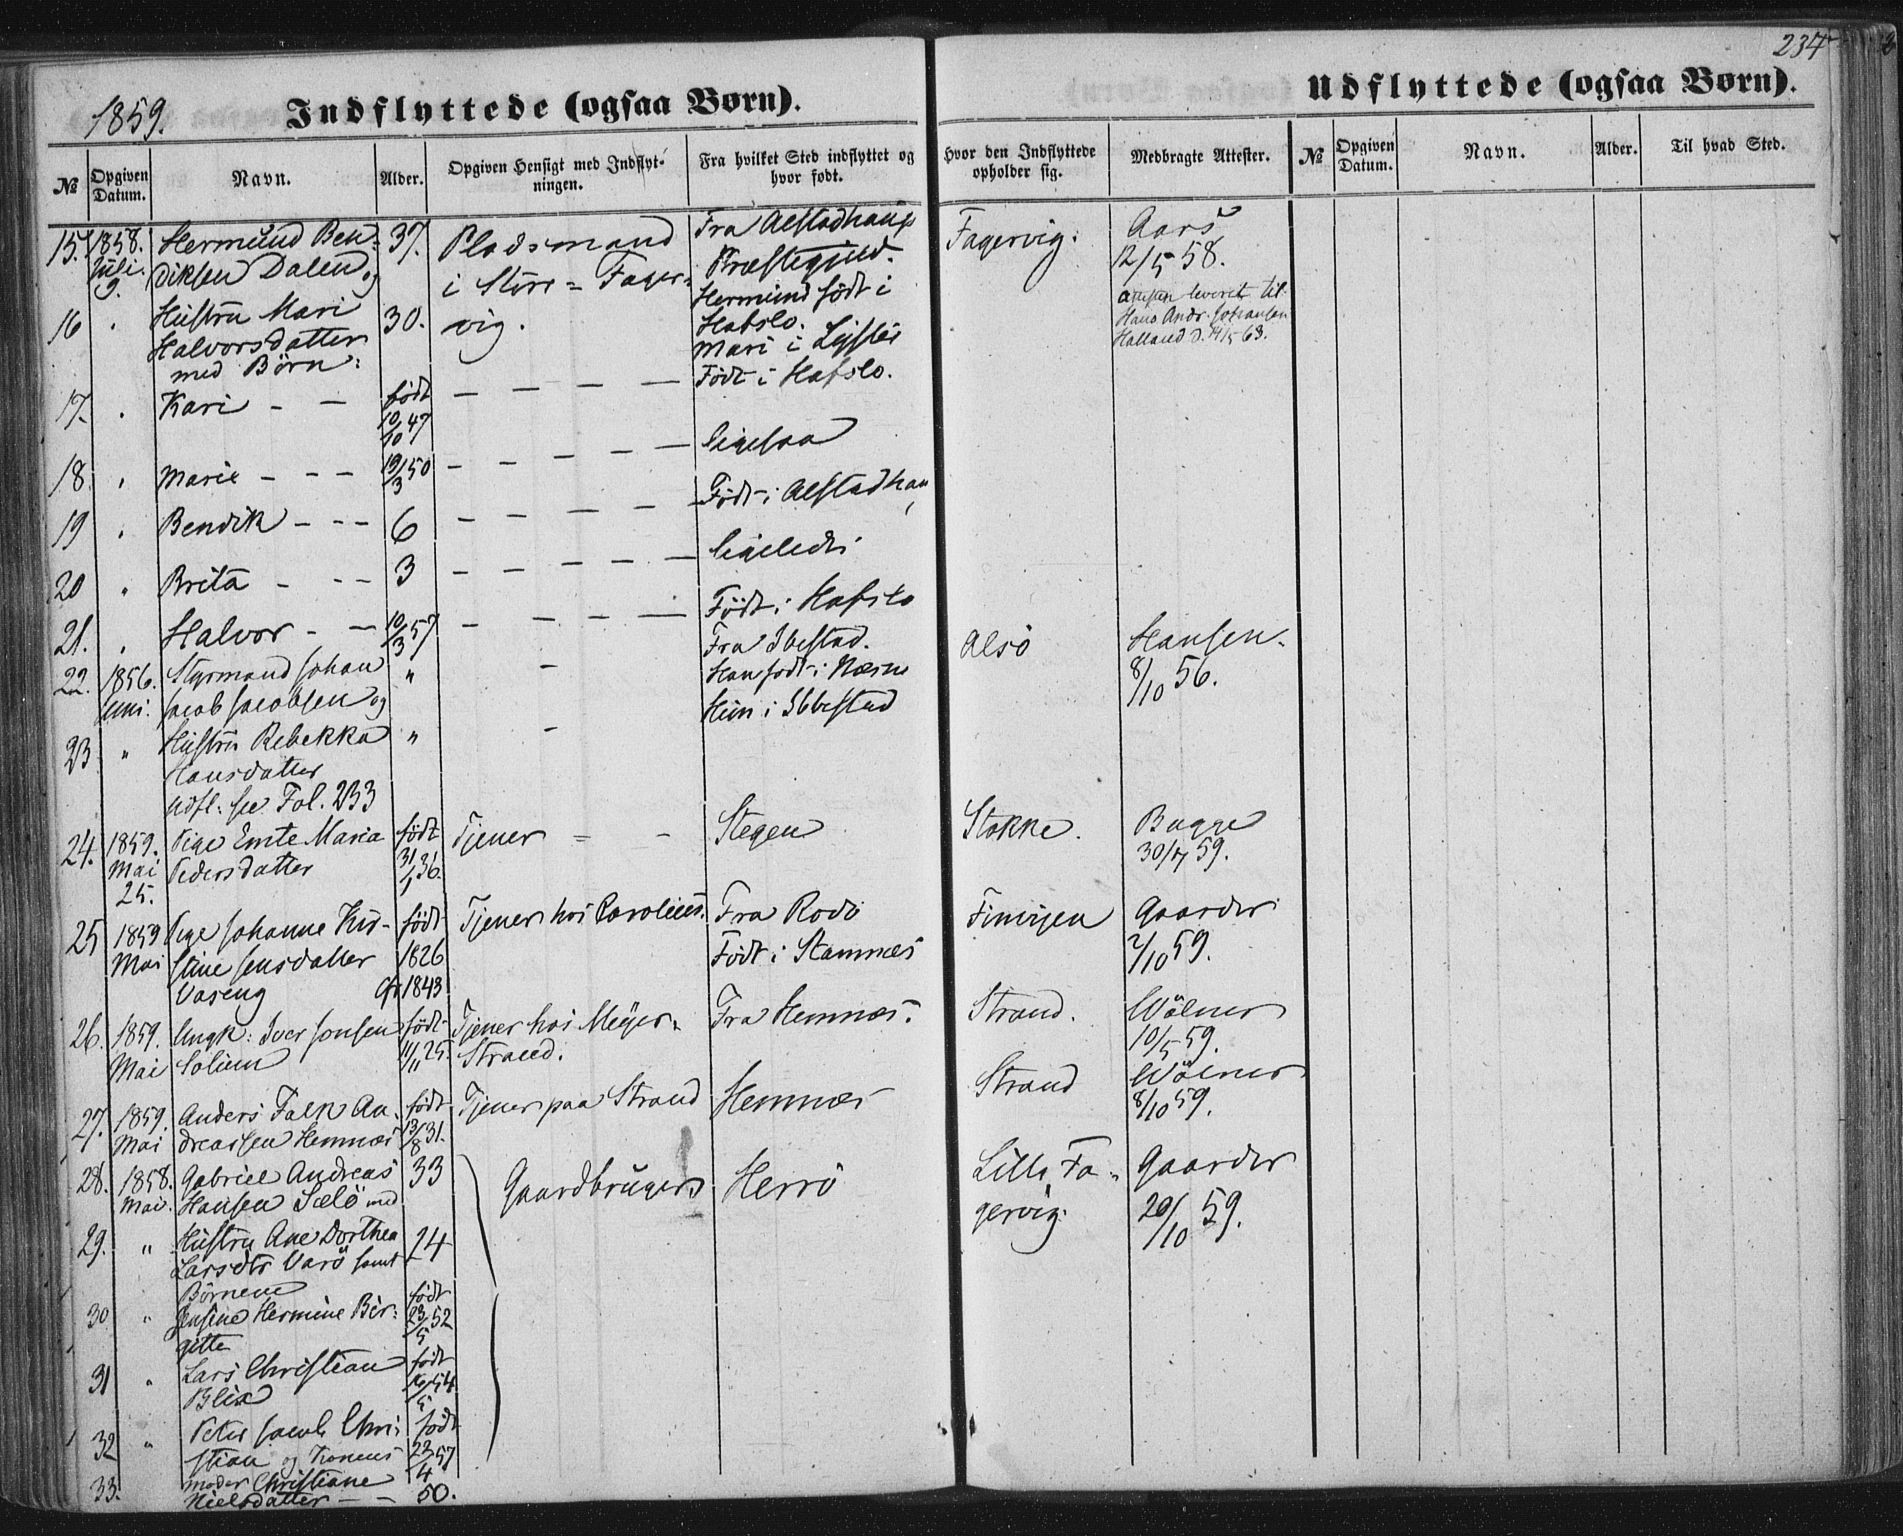 234
1859.
Indflyttede (ogsaa Børn).
Udflyttede (ogsaa Børn).
№
Opgiven Datum.
Navn.
Alder.
Opgiven Hensigt med Indflyt-
ningen.
Fra hvilket Sted indflyttet og
hvor født.
Hvor den Indflyttede
opholder sig.
Medbragte Attester.
№
Opgiven Datum.
Navn.
Alder.
Til hvad Sted.
15. 1858. Hermund Ben- 37. Pladsmand Fra Alstadhaug Fagervig. Aars
Juli 9. diksen Dalen og i Store-Fager- Præstegjeld. 12/5 58.
Hermund født i
16 " Hustru Mari 30. vig. Hafslo. leveret til
Halvorsdatter Mari i Lyster Hans Andr. Johansen
med Børn: Halland d. 14/5 63.
17. " Kari - - født 10/10 47 - - - - Født i Hafslo.
18. " Marie - - - 19/3 50 - - - - - ligesaa
19 " Bendik - - - 6 - - - - Født i Alstadhau
20 " Brita - - - 3 - - - - - ligeledes
21. " Halvor - - 10/3 57 - - - - Født i Hafslo
22. 1856. Styrmand Johan " - Fra Ibestad. Alsö Hansen.
Juni. Jacob Jacobsen og Han født i Næsne 8/10 56.
Hun i Ibbestad
23 " Hustru Rebekka " -
Hansdatter
Udfl: see Fol. 233
24. 1859. Pige Emte Maria født Tjener - - Stegen Stokke. Bugge
Mai 25. Pedersdatter 31/1 36. 30/7 59.
25 1859 Pige Johanne Kir- født Tjener hos Parolius. Fra Rodö Finvigen Gaarder
Mai stine Jensdatter 1826 Født i Stamnæs 2/10 59.
Vaseng Cf. 1843
26. 1859. Ungk: Iver Jonsen født Tjener hos Meyer- Fra Hemnæs. Strand. Wölner
Mai Solium 11/11 25. Strand. 10/5 59.
27. 1859. Anders Falk An- født Tjener paa Strand Hemnæs Strand Wölner
Mai dreassen Hemnæs 13/8 31. 8/10 59.
28. 1858. Gabriel Andreas 33 Gaardbrugers Herrö Lille Fa- Gaarder
Mai. Hansen Sælö med gervig. 20/10 59.
29. " Hustru Ane Dorthea 24
Larsdtr Varö samt
Børnene
30 " Jensine Hermine Bir- født 23/5 52
gitte
31 " Lars Christian født
Blix 16/5 54
32 " Peter Jacob Chri- født
stian og Konens 22/4 57
33. moder Christiane
Nielsdatter - - 50.